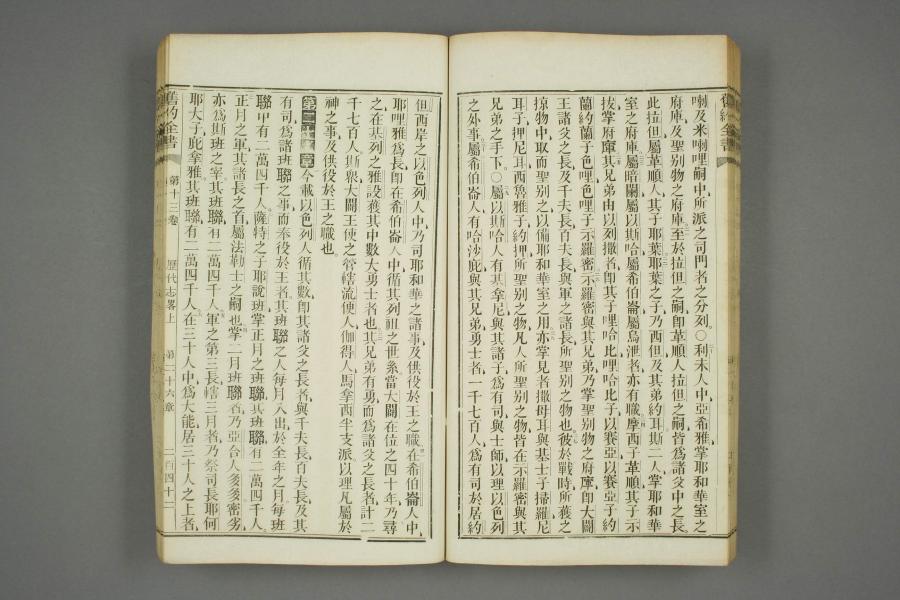 喇及米喇哩嗣中所派之司門者之分列〇利未人中亞希雅掌耶和華室之
府庫及聖別物之府庫至於拉但之嗣卽革順人拉但之嗣皆爲諸父中之長
此拉但屬革順人其子耶葉耶葉之子乃西但及其弟約耳斯二人掌耶和華
室之府庫屬暗闌屬以斯哈屬希伯崙屬烏泄者亦有職摩西子革順其子示
拔掌府庫其兄弟由以列撒者卽其子哩哈比哩哈比子以賽亞以賽亞子約
蘭約蘭子色哩色哩子示羅密示羅密與其兄弟乃掌聖別物之府庫卽大闢
王諸父之長及千夫長百夫長與軍之諸長所聖別之物也彼於戰時所獲之
掠物中取而聖別之以備耶和華室之用亦掌見者撒母耳與基士子掃羅尼
耳子押尼耳西魯雅子約押所聖別之物凡人所聖別之物皆在示羅密與其
兄弟之手下〇屬以斯哈人有基拿尼與其諸子爲有司與士師以理以色列
之外事屬希伯崙人有哈沙庇與其兄弟勇士者一千七百人爲有司於居約
但西岸之以色列人中乃司耶和華之諸事及供役於王之職在希伯崙人中
耶哩雅爲長卽在希伯崙人中循其列祖之世系當大闢在位之四十年乃尋
之在基列之雅設獲其中數大勇士者也其兄弟有勇而爲諸父之長者計二
千七百人斯衆大闢王使之管轄流便人伽得人馬拿西半支派以理凡屬於
神之事及供役於王之職也
今載以色列人循其數卽其諸父之長者與千夫長百夫長及其
有司爲諸班聯之事而奉役於王者其班聯之人每月入出於全年之月每班
聯中有二萬四千人薩特之子耶說班掌正月之班聯其班聯有二萬四千人
正月之軍其諸長之首屬法勒士之嗣也掌二月班聯者乃亞合人多多密劣
亦爲斯班之宰其班聯有二萬四千人軍之第三長轄三月者乃祭司長耶何
耶大子庇拿雅其班聯有二萬四千人在三十人中爲大能居三十人之上者
舊約全書
第十三卷
歷代志畧上
第二十六章
二百四十一